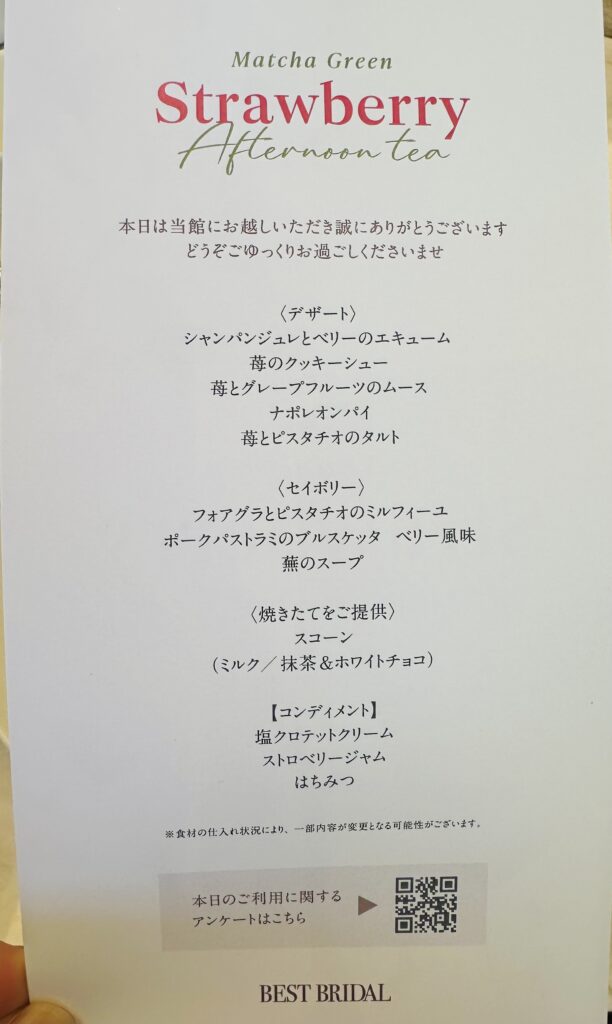 Matcha Green
Strawberry
Afternoon tea
本日は当館にお越しいただき誠にありがとうございます
どうぞごゆっくりお過ごしくださいませ
〈デザート〉
シャンパンジュレとベリーのエキューム
苺のクッキーシュー
苺とグレープフルーツのムース
ナポレオンパイ
苺とピスタチオのタルト
〈セイボリー〉
フォアグラとピスタチオのミルフィーユ
ポークパストラミのブルスケッタ ベリー風味
蕪のスープ
〈焼きたてをご提供〉
スコーン
(ミルク／抹茶＆ホワイトチョコ)
【コンディメント】
塩クロテットクリーム
ストロベリージャム
はちみつ
※食材の仕入れ状況により、一部内容が変更となる可能性がございます。
本日のご利用に関する
アンケートはこちら
BEST BRIDAL